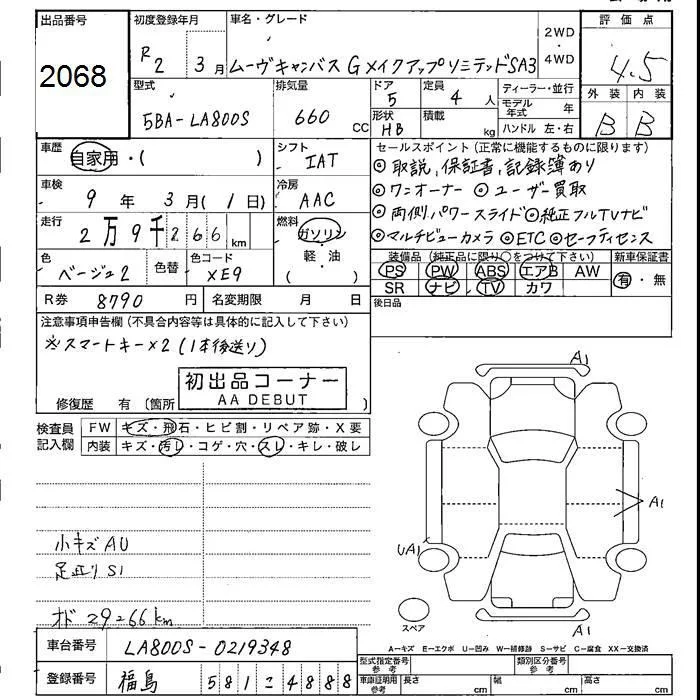 出品番号
2068
初度登録年月
R2 3月
車名・グレード
ムーヴキャンバス Gメイクアップリミテッド SA3
2WD
・
4WD
評価点
4.5
外装 内装
B B
型式
5BA-LA800S
排気量
660 CC
ドア 5
形状 HB
定員 4 人
積載 kg
ディーラー・並行
モデル年式 年
ハンドル 左・右
車歴
自家用・( )
シフト
IAT
セールスポイント (正常に機能するものに限ります)
◎取説,保証書,記録簿あり
◎ワンオーナー ◎ユーザー買取
◎両側パワースライド◎純正フルTVナビ
◎マルチビューカメラ ◎ETC ◎セーフティセンス
車検
9年 3月(1日)
冷房
AAC
走行
2万9千266 km
燃料
ガソリン
・
軽・油
( )
色
ベージュ2
色替
色コード
XE9
R券 8790 円
名変期限 月 日
装備品(純正品に限り○をつけて下さい)
PS PW ABS エアB AW
SR ナビ TV カワ
新車保証書
有・無
後日品
注意事項申告欄(不具合内容等は具体的に記入して下さい)
※スマートキー×2 (1本後送り)
初出品コーナー
AA DEBUT
修復歴 有 〔箇所 〕
検査員記入欄
FW キズ・飛石・ヒビ割・リペア跡・X要
内装 キズ・汚レ・コゲ・穴・スレ・キレ・破レ
小キズ AU
足廻り S1
オド 29266km
A1
A1
UA1
A1
スペア
車台番号 LA800S-0219348
登録番号 福島 581 こ 4888
A-キズ E-エクボ U-凹み W-補修跡 S-サビ C-腐食 XX-交換済
型式指定番号 参考
類別区分番号 参考
車庫証明用 参考
長さ cm
幅 cm
高さ cm